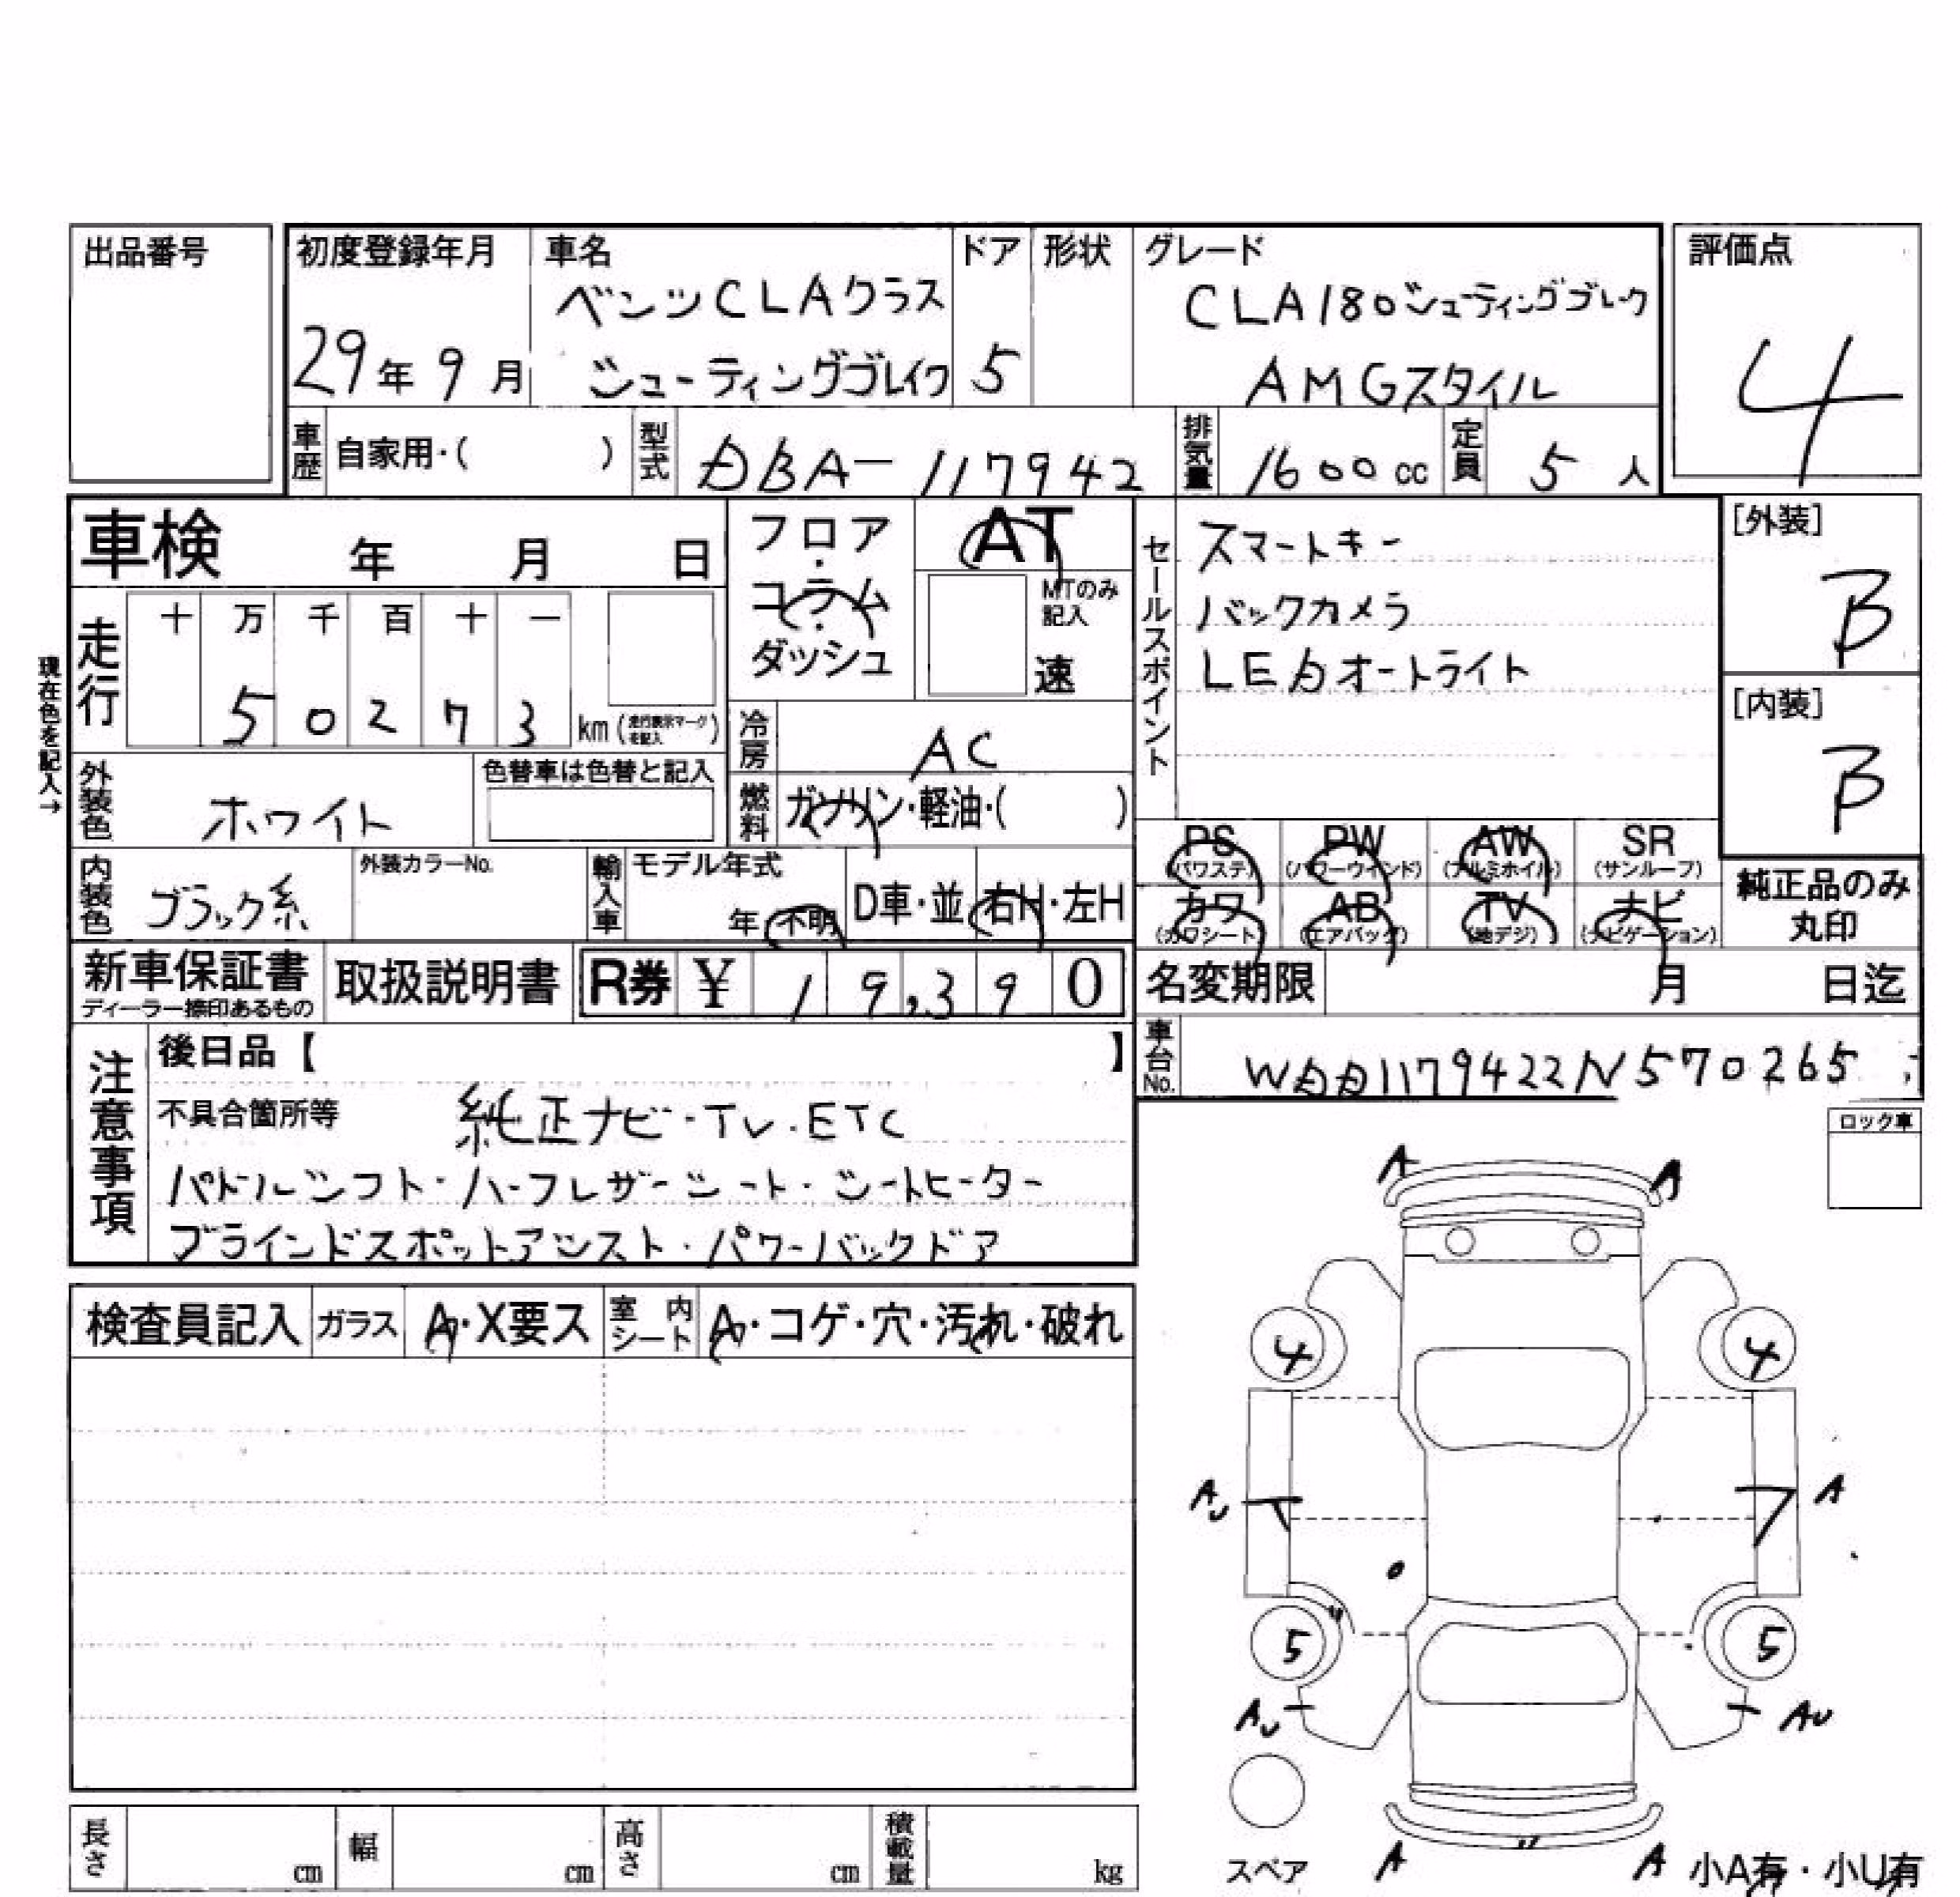 出品番号
初度登録年月 車名 ドア 形状 グレード 評価点
ベンツCLAクラス CLA180シューティングブレーク
29年9月 シューティングブレイク 5 AMGスタイル 4
車歴 自家用・( ) 型式 DBA-117942 排気量 1600cc 定員 5人
車検 年 月 日
フロア・コラム・ダッシュ
AT
MTのみ記入
速
セールスポイント
スマートキー
バックカメラ
LEDオートライト
[外装]
B
[内装]
B
現在色を記入→
走行 十 万 千 百 十 一
5 0 2 7 3 km (走行表示マークを記入)
冷房 AC
外装色 ホワイト 色替車は色替と記入
燃料 ガソリン・軽油・( )
PS AW SR
PW
(パワステ) (パワーウインド) (アルミホイル) (サンルーフ)
カワ AB TV ナビ
(カワシート) (エアバッグ) (地デジ) (ナビゲーション)
純正品のみ
丸印
内装色 ブラック系 外装カラーNo. 輸入車 モデル年式
年・不明 D車・並 右H・左H
新車保証書 取扱説明書 R券 ¥ 19,390
ディーラー捺印あるもの
名変期限 月 日迄
車台No. WDD1179422N570265
注意事項
後日品【 】
不具合箇所等 純正ナビ・TV・ETC
パドルシフト・ハーフレザーシート・シートヒーター
ブラインドスポットアシスト・パワーバックドア
ロック車
検査員記入 ガラス A・X要ス 室内シート A・コゲ・穴・汚れ・破れ
A A
4 4
AU A
5 5
AU AU
スペア A A 小A有・小U有
長さ cm 幅 cm 高さ cm 積載量 kg